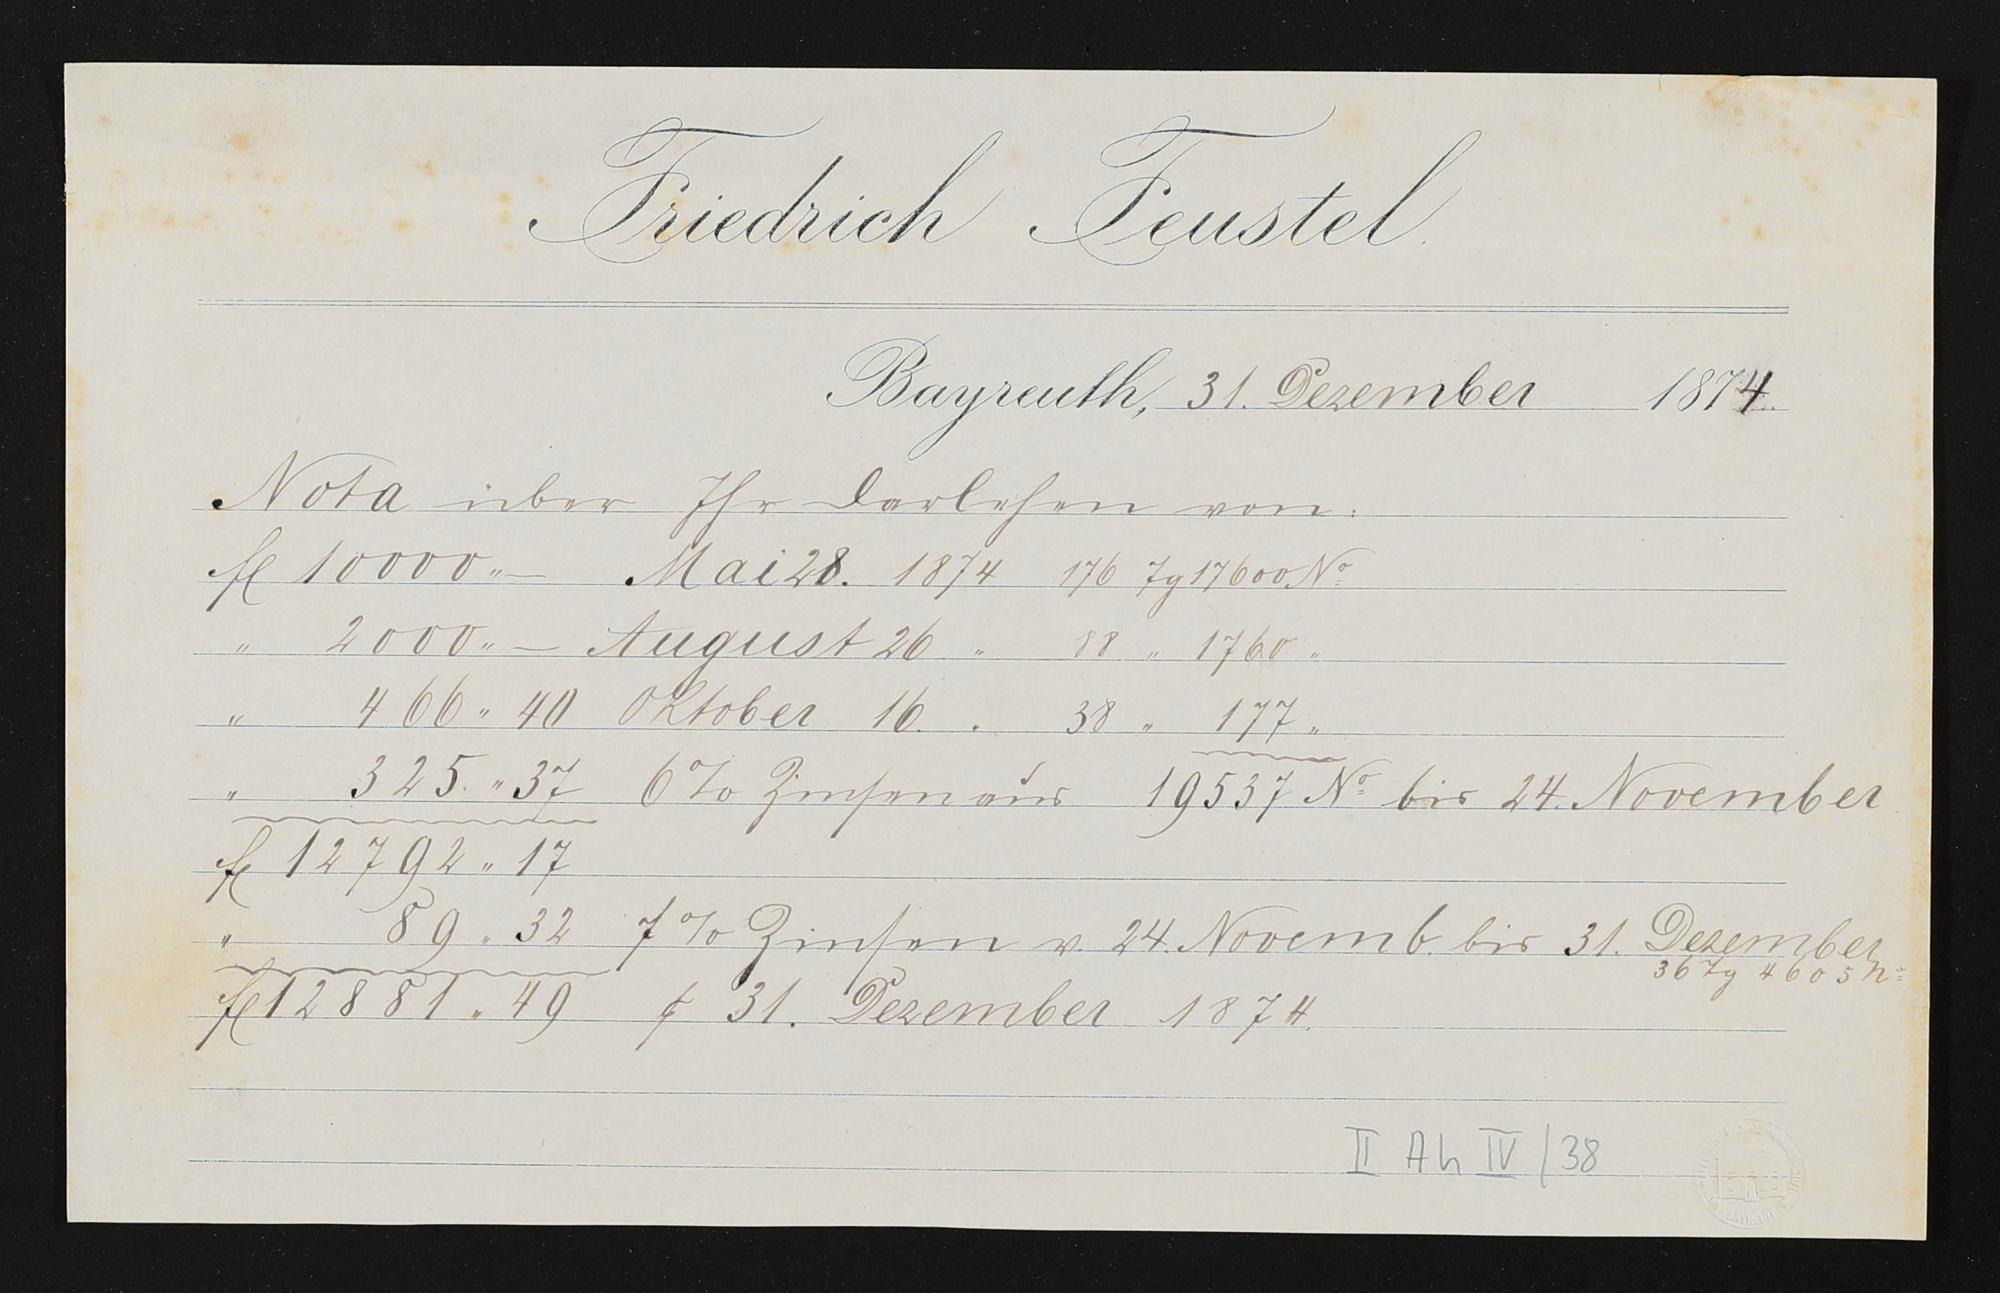 Friedrich Feustel.
Bayreuth, 31. Dezember 1874.
Nota über Ihr Darlehen von:
fl 10000„— Mai 28. 1874 176 Tg 17600 No
„ 2000„— August 26 „ 88 „ 1760 „
„ 466„40 Oktober 16. „ 38 „ 177 „
„ 325.„37 6% Zinsen aus 19537 No bis 24. November
fl 12792„17
„ 89„32 7% Zinsen v. 24. Novemb. bis 31. Dezember
36 Tg 4605 No
fl 12881„49 31. Dezember 1874.
II Ah IV/38